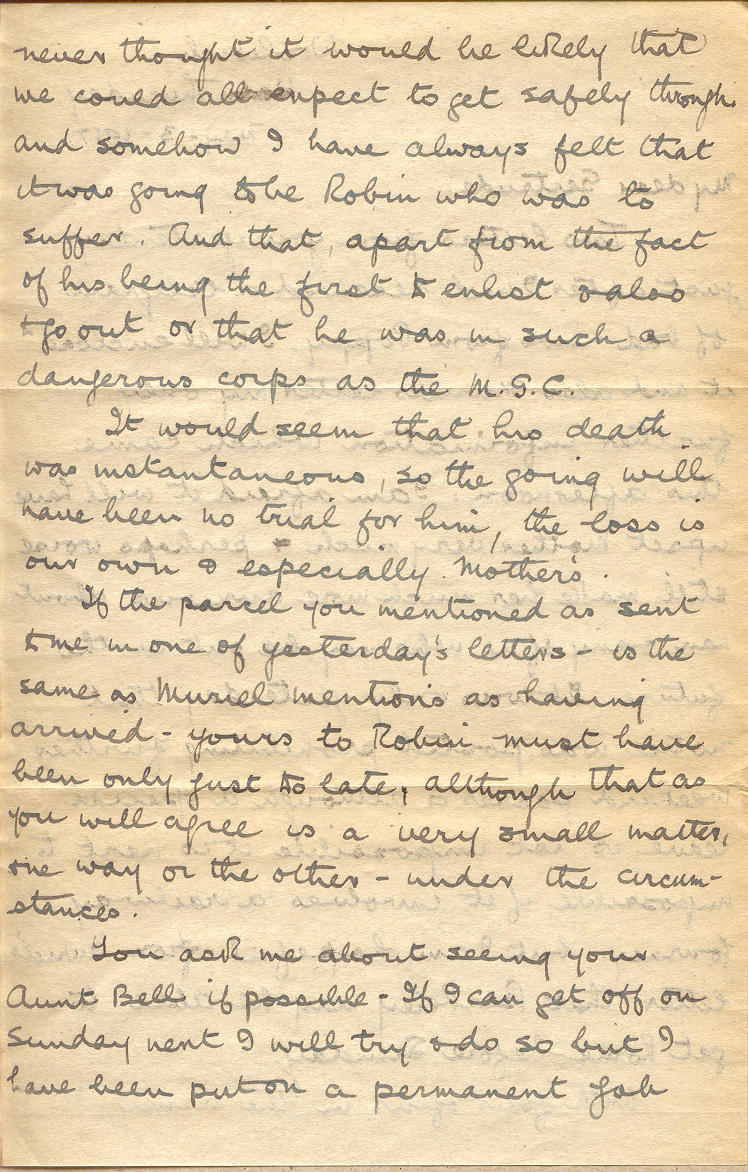 never thought it would be likely that
we could all expect to get safely through.
and somehow I have always felt that
it was going to be Robin who was to
suffer. And that, apart from the fact
of his being the first to enlist & also
to go out or that he was in such a
dangerous corps as the M.G.C.
It would seem that his death
was instantaneous, so the going will
have been no trial for him, the loss is
our own & especially Mother's.
If the parcel you mentioned as sent
to me in one of yesterday's letters - is the
same as Muriel mentions as having
arrived - yours to Robin must have
been only just to late, although that as
you will agree is a very small matter,
one way or the other - under the circum-
stances.
You ask me about seeing your
Aunt Bell if possible - If I can get off on
Sunday next I will try & do so but I
have been put on a permanent job